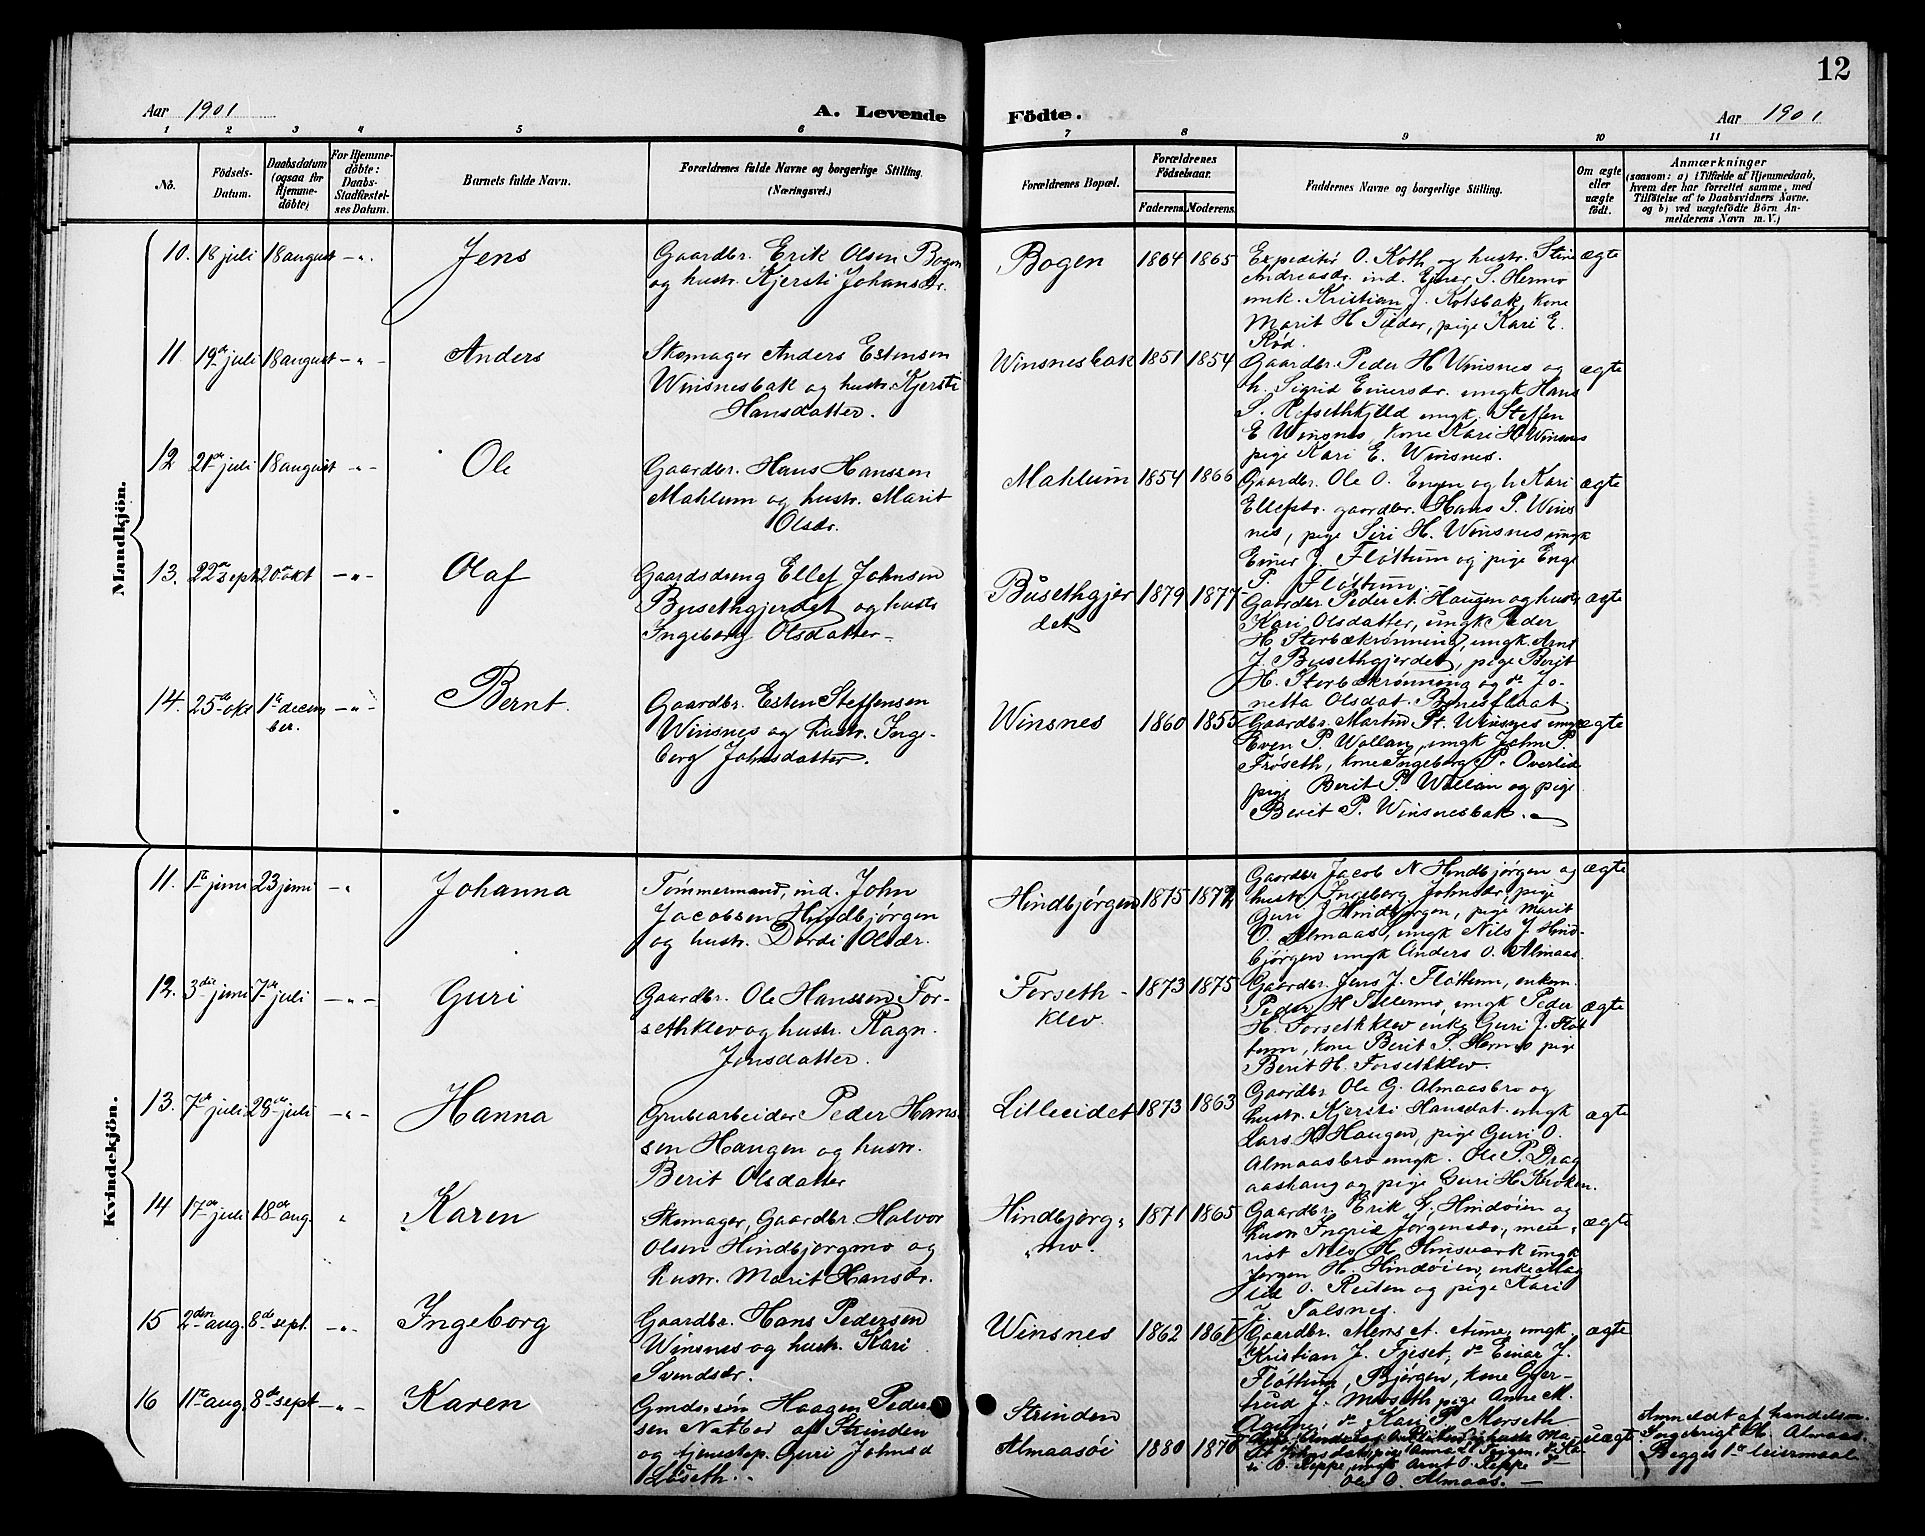 12
Aar 1901
A. Levende
Födte.
Aar 1901
1 2 3 4 5 6 7 8 9 10 11
No.
Födsels-
Datum.
Daabsdatum
(ogsaa for
Hjemme-
döbte)
For Hjemme-
döbte:
Daabs-
Stadfæstel-
ses Datum.
Barnets fulde Navn.
Forældrenes fulde Navne og borgerlige Stilling.
(Næringsvei.)
Forældrenes Bopæl.
Forældrenes
Födselsaar.
Faderens. Moderens.
Faddernes Navne og borgerlige Stilling.
Om ægte
eller
uægte
födt.
Anmærkninger
(saasom: a) i Tilfælde af Hjemmedaab,
hvem der har forrettet samme, med
Tilföielse af to Daabsvidners Navne,
og b) ved uægtefödte Börn An-
melderens Navn m. V.)
Mandkjön.
10. 18 juli 18 august -"- Jens
Gaardbr. Erik Olsen Bogen
og hustr. Kjersti Johansdr.
Bogen 1864 1865
Expeditör O. Koth og hustr. Stine
Andreasdr. ind. Ejner S. Hermo
umk. Kristian J. Kolsbak, kone
Marit H. , pige Kari E.
Röd.
ægte
11 19de juli 18 august -"- Anders
Skomager Anders Estensen
Winsnesbak og hustr. Kjersti
Hansdatter.
Winsnesbak 1851 1854
Gaardbr. Peder H Winsnes og
h. Sigrid Einersdr. umgk Hans
S. Refsethkjeld umgk. Steffen
E Winsnes, kone Kari H Winsnes
pige Kari E. Winsnes.
ægte
12 21de juli 18 august -"- Ole
Gaardbr. Hans Hanssen
Mahlum og hustr. Marit
Olsdr.
Mahlum 1854 1866
Gaardbr. Ole O. Engen og h Kari
Ellefsdr. gaardbr. Hans P. Wins
nes, pige Siri H. Winsnes umgk
Einer J. Flöttum og pige Enge
P. Flöttum.
ægte
13. 22de sept 20de okt -"- Olaf
Gaardsdreng Ellef Johnsen
Busethgjerdet og hustr
Ingeborg Olsdatter
Busethgjer
det
1879 1877
Gaardbr Peder A. Haugen og hustr
Kari Olsdatter, umgk Peder
H Storbækrönning, umgk. Arnt
J. Busethgjerdet, pige Berit
H. Storbækrönning og de Jo-
netta Olsdat.
ægte
14. 25de okt 1te decem
ber. -"- Bernt.
Gaardbr. Esten Steffensen
Winsnes og hustr. Inge-
borg Johnsdatter.
Winsnes 1860 1855
Gaardbr. Martin Winsnes umgk
Even P. Wollan, umgk John P.
Fröseth, kone Ingeborg P. Overlid
pige Berit P. Wollan og pige
Berit P. Winsnesbak.
ægte
Kvindekjön.
11. 1te juni 23 juni -"- Johanna
Tömmermand, ind. John
Jacobsen Hindbjörgen
og hustr. Dordi Olsdr.
Hindbjörgen 1875 1872
Gaardbr Jacob N Hindbjörgen og
hustr Ingeborg Johnsdr, pige
Guri J Hindbjörgen, pige Marit
O. Almaas, umgk Nils J. Hind-
björgen umgk Anders O. Almaas.
ægte
12. 3die juni 7de juli -"- Guri
Gaardbr. Ole Hanssen For-
sethklev og hustr. Ragn.
Jensdatter.
Forseth-
klev.
1873 1875
Gaardbr. Jens J. Flöttum, enkem.
Peder H Tellermo, umgk Peder
H. Forsethklev enke Guri J. Flöt
tum, kone Berit S. Hernes pige
Berit H. Forsethklev.
ægte
13. 7de juli 28de juli -"- Hanna
Grubearbeider Peder Hans
sen Haugen og hustr.
Berit Olsdatter
Lilleeidet 1873 1863
Gaardbr Ole G. Almaasbro og
hustr. Kjersti Hansdat. umgk
Lars H Haugen, pige Guri O.
Almaasbro umgk. Ole P. Drag
aashaug og pige Guri H. Kroken.
ægte
14 17de juli 18de aug. " Karen
Skomager, Gaardbr. Halvor
Olsen Hindbjörgmo og
hustr. Marit Hansdr.
Hindbjörg-
mo.
1871 1865
Gaardbr. Erik L. Hindöien og
hustr Ingrid Jörgensdr, meie-
rist Nils H. umgk
Jörgen H. Hindöien, enke Mag
lid O. Reiten og pige Kari
J. Talsnes.
ægte
15 2den aug. 8de sept. -"- Ingeborg
Gaardbr. Hans Pedersen
Winsnes og hustr. Kari
Svendsdr.
Winsnes 1862 1861
Gaardbr. Mons A. Aune, umgk
Kristian J. Fjeset, de Einar J.
Flöttum, Björgen, kone Gjer-
trud J. Moseth pige Anne M.
Aune, de Kari P. Morseth
ægte
16 11te aug. 8de sept -"- Karen
Gmdssön Haagen Peder
sen Natbor af Strinden
og tjenestep. Guri Johnsd
Löseth.
Strinden
Almaasöi
1880 1870
O. Reppe, umgk Arnt O. Reppe &
Ole O. Almaas.
uægte
Anmeldt af handelsm.
Ingebrigt H. Almaas.
Begges 1te leiermaal